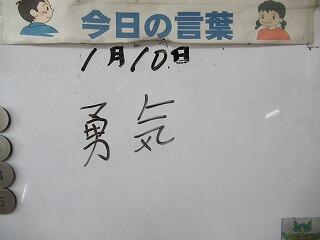 今日の言葉
1月10日
勇気